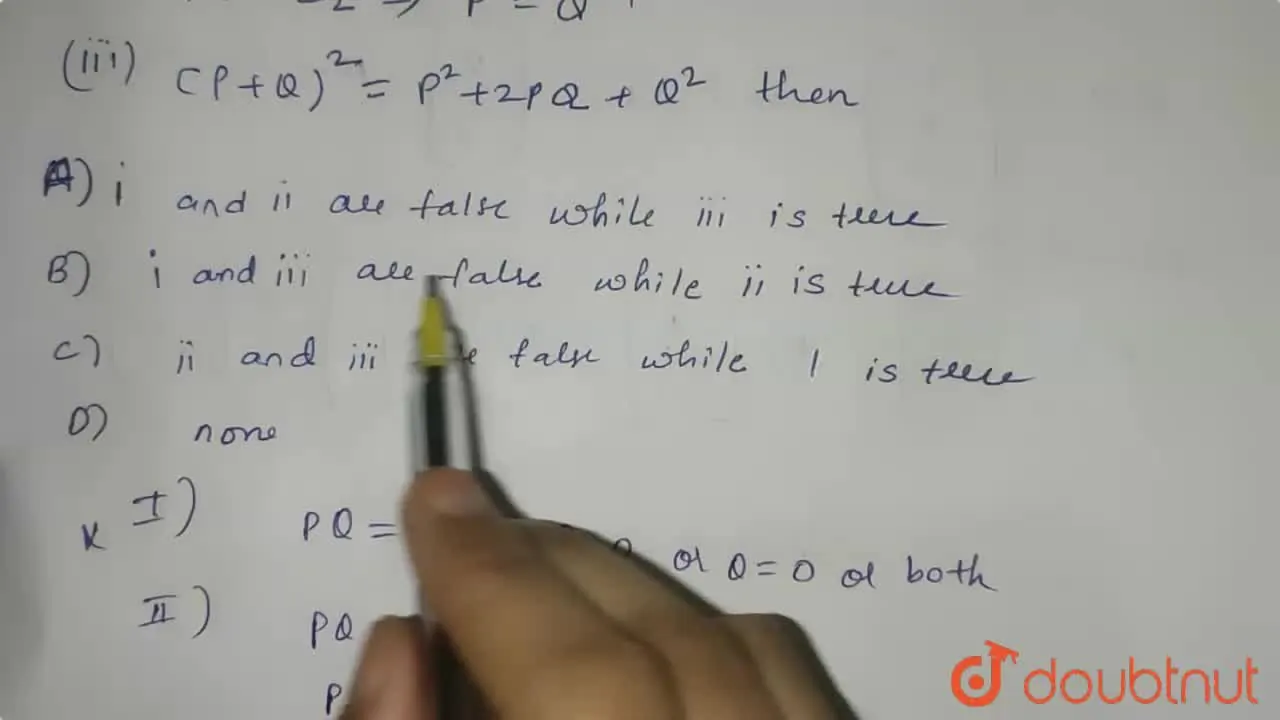 2 ⇒ P = Q^-1
(iii) (P+Q)² = P² + 2PQ + Q² then
A) i and ii are false while iii is true
B) i and iii are false while ii is true
C) ii and iii false while I is true
D) none
x I) PQ = or Q = 0 or both
II) PQ
P
doubtnut